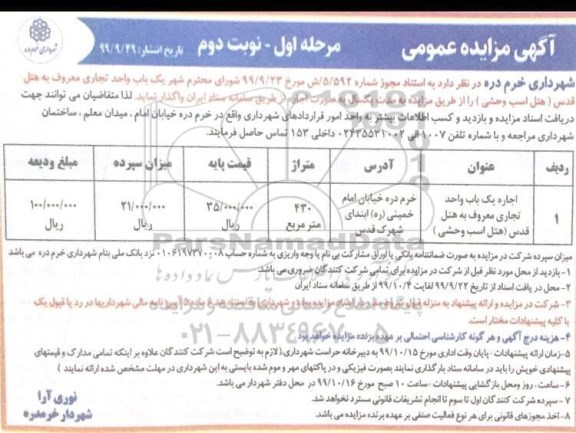 آگهی مزایده عمومی
مرحله اول - نوبت دوم
تاریخ انتشار: ۹۹/۹/۲۹
شهرداری خرم دره
شهرداری خرم دره در نظر دارد به استناد مجوز شماره ۵/۵۹۲/ش مورخ ۹۹/۹/۲۳ شورای محترم شهر یک باب واحد تجاری معروف به هتل
قدس (هتل اسب وحشی) را از طریق مزایده به مدت یکسال به صورت اجاره از طریق سامانه ستاد ایران واگذار نماید. لذا متقاضیان می توانند جهت
دریافت اسناد مزایده و بازدید و کسب اطلاعات بیشتر به واحد امور قراردادهای شهرداری واقع در خرم دره خیابان امام، میدان معلم، ساختمان
شهرداری مراجعه و با شماره تلفن ۱۰۰۷ الی ۰۲۴۳۵۵۳۱۰۰۲ داخلی ۱۵۳ تماس حاصل فرمایند.
ردیف عنوان آدرس متراژ قیمت پایه میزان سپرده مبلغ ودیعه
۱ اجاره یک باب واحد تجاری معروف به هتل قدس (هتل اسب وحشی) خرم دره خیابان امام خمینی (ره) ابتدای شهرک قدس ۴۳۰ متر مربع ۳۵/۰۰۰/۰۰۰ ریال ۲۱/۰۰۰/۰۰۰ ریال ۱۰۰/۰۰۰/۰۰۰ ریال
میزان سپرده شرکت در مزایده به صورت ضمانتنامه بانکی یا اوراق مشارکت بی نام یا وجه واریزی به شماره حساب ۰۱۰۶۱۹۷۳۷۰۰۰۸ نزد بانک ملی بنام شهرداری خرم دره می باشد
۱- بازدید از محل مورد نظر قبل از شرکت در مزایده برای تمامی شرکت کنندگان ضروری می باشد.
۲- محل دریافت اسناد از تاریخ ۹۹/۹/۲۲ لغایت ۹۹/۱۰/۴ از طریق سامانه ستاد ایران
۳- شرکت در مزایده و ارائه پیشنهاد به منزله قبول شهرداری مالی شهرداریها در رد یا قبول یک
یا کلیه پیشنهادات مختار است.
۴- هزینه درج آگهی و هر گونه کارشناسی احتمالی بر عهده برنده مزایده خواهد بود
۵- زمان ارائه پیشنهادات: پایان وقت اداری مورخ ۹۹/۱۰/۱۵ به دبیرخانه حراست شهرداری (لازم به توضیح است شرکت کنندگان علاوه بر اینکه تمامی مدارک و قیمتهای
پیشنهادی خویش را باید در سامانه ستاد بارگذاری نمایند بصورت فیزیکی و در پاکتهای مهر و موم شده بایستی به این شهرداری در مهلت مشخص شده ارائه نمایند)
۶- ساعت، روز ومحل بازگشایی پیشنهادات: ساعت ۱۰ صبح مورخ ۹۹/۱۰/۱۶ در محل دفتر شهردار می باشد.
۷- سپرده شرکت کنندگان اول تا سوم تا انجام تشریفات قانونی مسترد نخواهد شد.
۸- اخذ مجوزهای قانونی برای هر نوع فعالیت صنفی بر عهده برنده مزایده می باشد.
نوری آرا
شهردار خرمدره
ParsNamadData
پایگاه اطلاع رسانی مناقصه و مزایده
۰۲۱-۸۸۳۴۹۶۷۰-۵